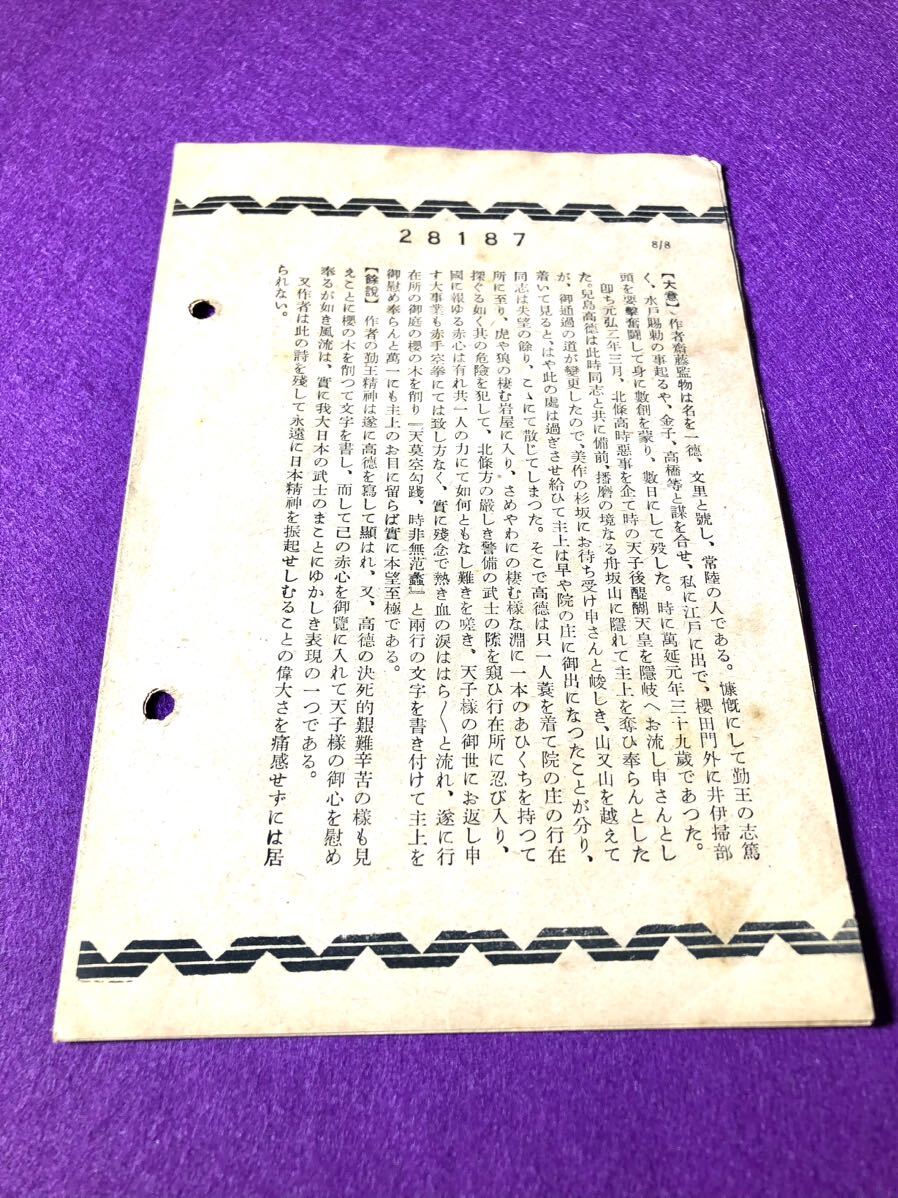 28187
8/8
【大意】 作者齋藤監物は名を一德、文里と號し、常陸の人である。慷慨にして勤王の志篤
く、水戸賜勅の事起るや、金子、高橋等と謀を合せ、私に江戸に出で、櫻田門外に井伊掃部
頭を要擊奮鬪して身に數創を蒙り、數日にして歿した。時に萬延元年三十九歲であつた。
卽ち元弘二年三月、北條高時惡事を企て時の天子後醍醐天皇を隱岐へお流し申さんとし
た。兒島高德は此時同志と共に備前、播磨の境なる舟坂山に隱れて主上を奪ひ奉らんとした
が、御通過の道が變更したので、美作の杉坂にお待ち受け申さんと峻しき、山又山を越えて
着いて見ると、はや此の處は過ぎさせ給ひて主上は早や院の庄に御出になつたことが分り、
同志は失望の餘り、こゝにて散じてしまつた。そこで高德は只一人蓑を着て院の庄の行在
所に至り、虎や狼の棲む岩屋に入り、さめやわにの棲む樣な淵に一本のあひくちを持つて
探ぐる如く共の危險を犯して、北條方の嚴しき警備の武士の隙を窺ひ行在所に忍び入り、
國に報ゆる赤心は有れ共一人の力にて如何ともなし難きを嘆き、天子樣の御世にお返し申
す大事業も赤手空拳にては致し方なく、實に殘念で熱き血の淚ははら〱と流れ、遂に行
在所の御庭の櫻の木を削り『天莫空勾踐、時非無范蠡』と兩行の文字を書き付けて主上を
御慰め奉らんと萬一にも主上のお目に留らば實に本望至極である。
【餘說】 作者の勤王精神は遂に高德を寫して顯はれ、又、高德の決死的艱難辛苦の樣も見
えことに櫻の木を削つて文字を書し、而して己の赤心を御覽に入れて天子樣の御心を慰め
奉るが如き風流は、實に我大日本の武士のまことにゆかしき表現の一つである。
又作者は此の詩を殘して永遠に日本精神を振起せしむることの偉大さを痛感せずには居
られない。